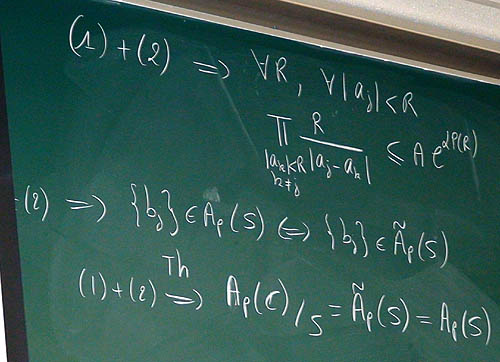 (1)+(2) ⇒ ∀R, ∀|aⱼ|<R
∏_{|aₖ|<R, k≠j} R/|aⱼ-aₖ| ≤ A e^{αP(R)}
(2) ⇒ {bⱼ}∈Aₚ(S) ⇔ {bⱼ}∈Ãₚ(S)
Th
(1)+(2) ⇒ Aₚ(ℂ)/S = Ãₚ(S) = Aₚ(S)